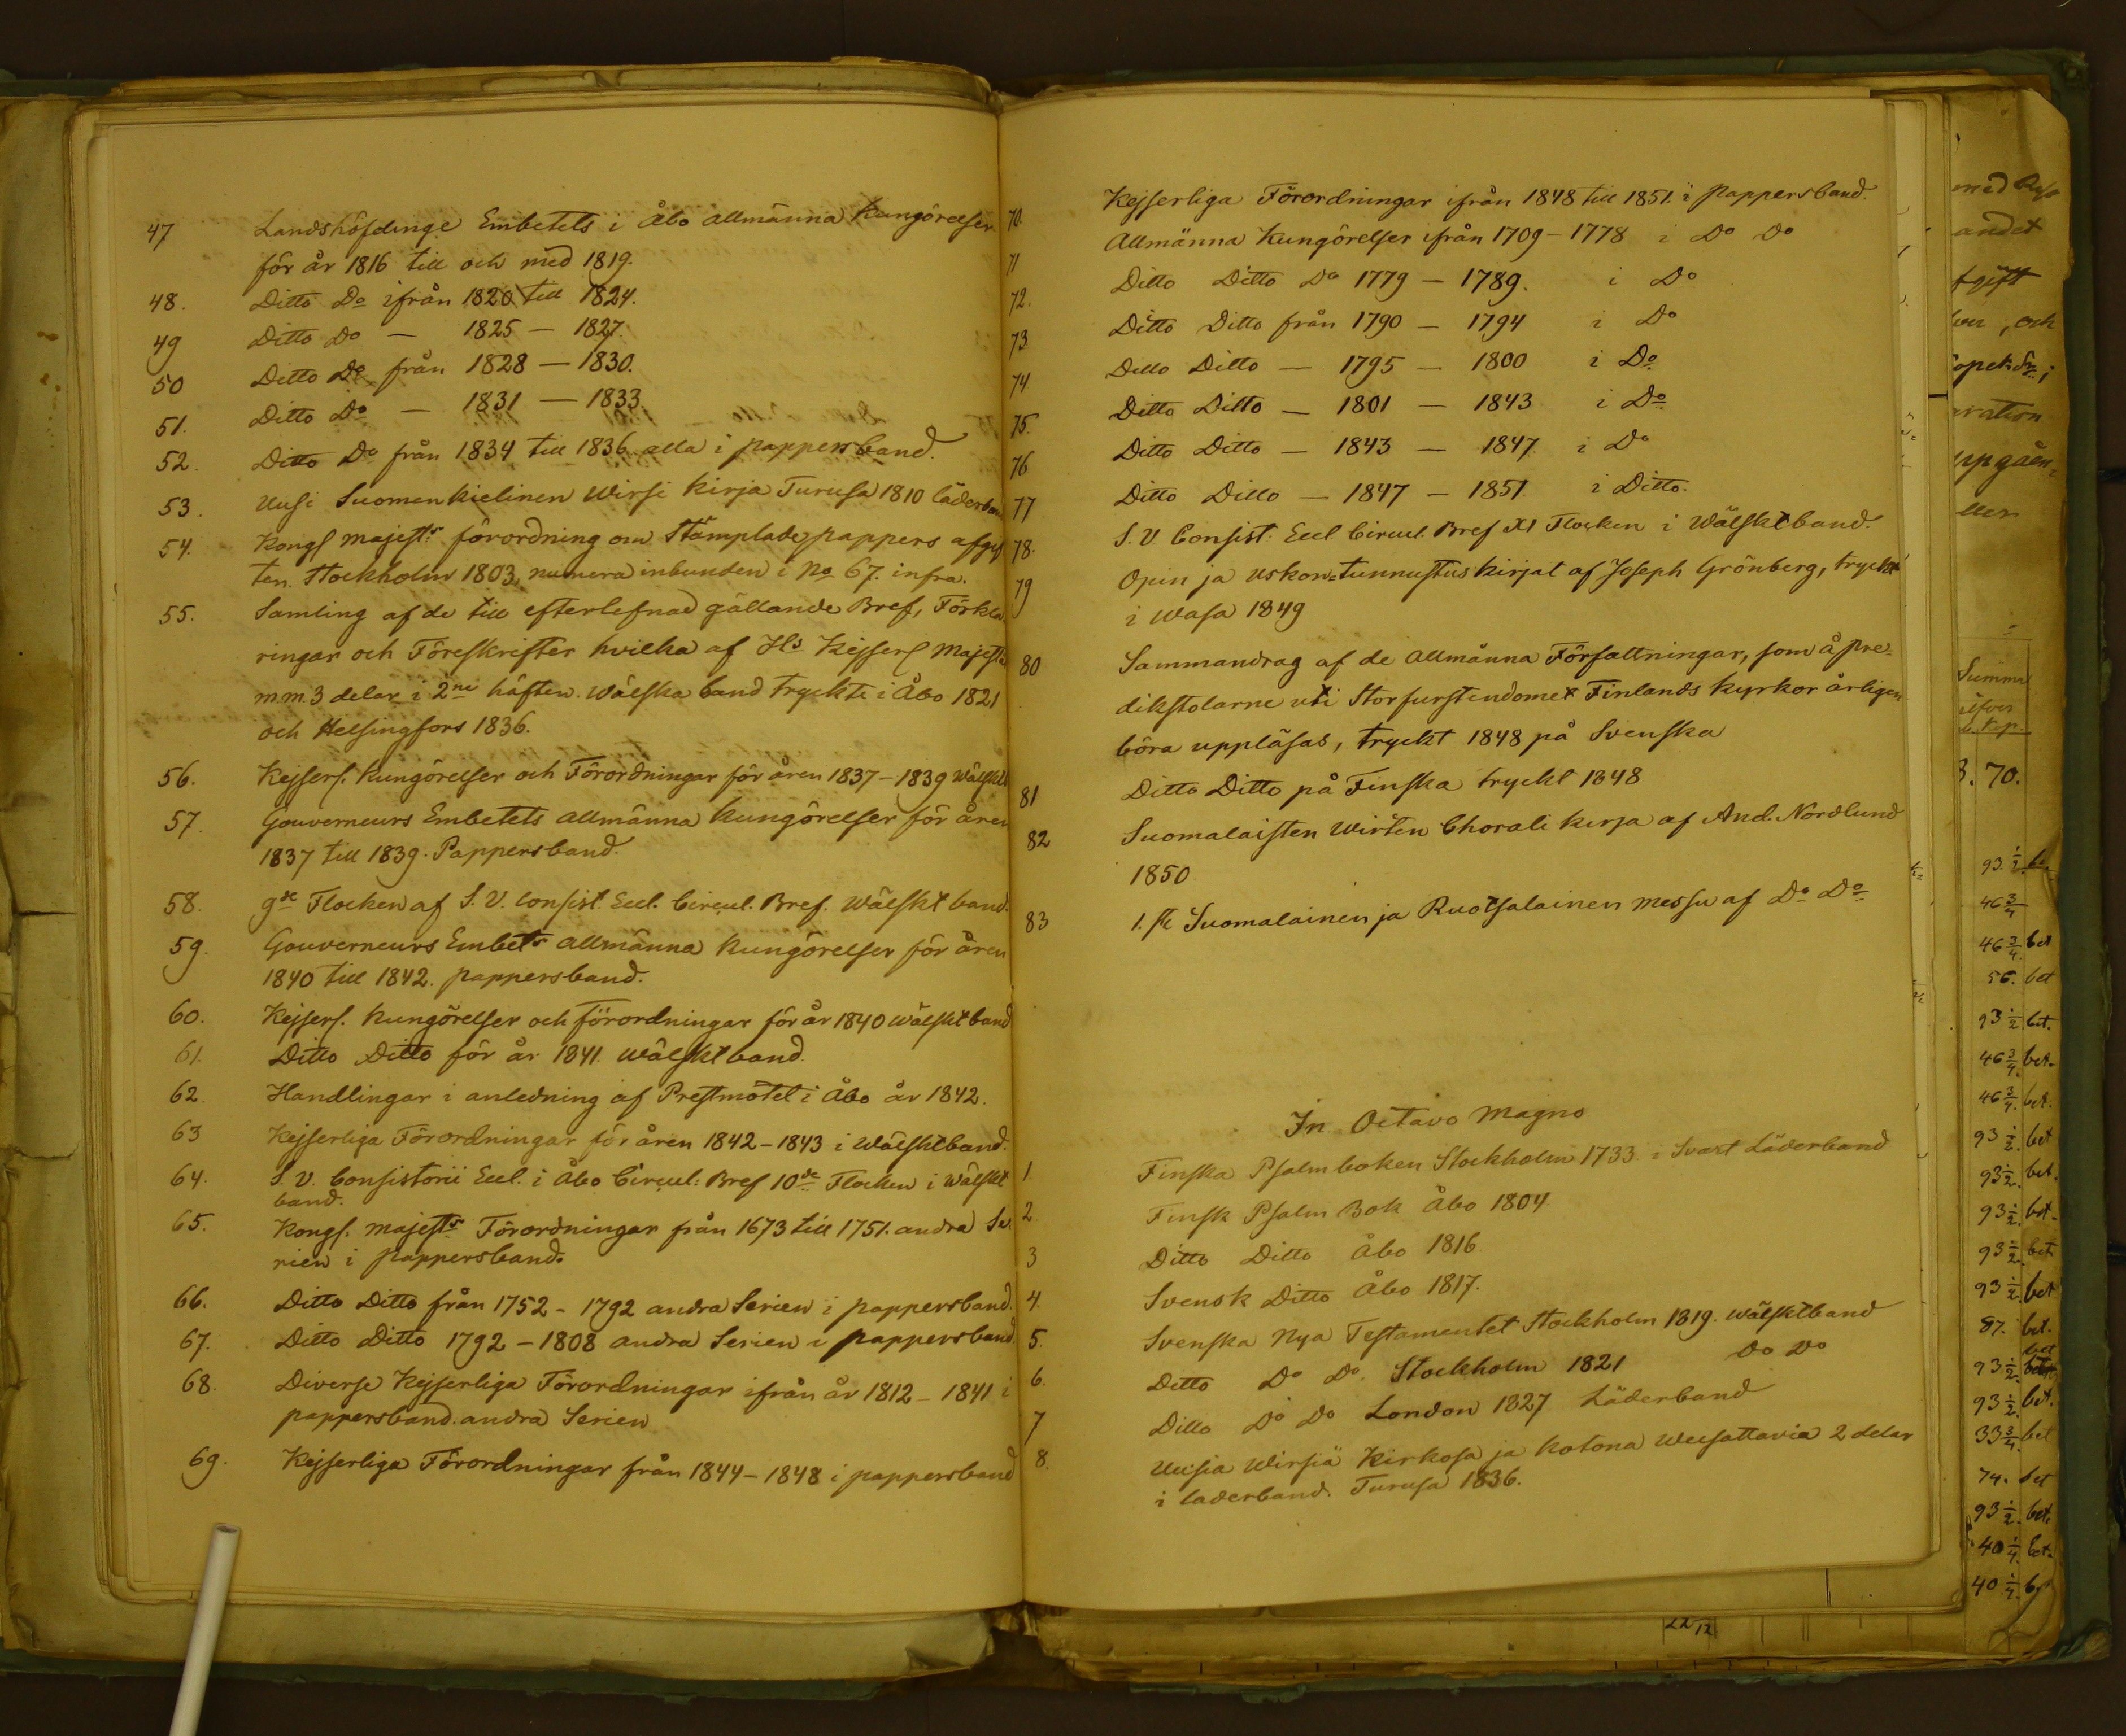 47 Landshöfdinge Embetets i Åbo allmänna Kungörelser
för år 1816 till och med 1819.
48. Ditto Do ifrån 1820 till 1824.
49 Ditto Do — 1825 — 1827.
50 Ditto Do från 1828 — 1830.
51. Ditto Do — 1831 — 1833
52. Ditto Do från 1834 till 1836 alla i pappersband.
53. Uusi Suomenkielinen Wirsi Kirja Turusa 1810 läderban
54. Kongl Majests förordning om Stämplade pappers afgif
ten. Stockholm 1803, numera inbunden i No 67. infra.
55. Samling af de till efterlefnad gällande Bref, Förkla
ringar och Föreskrifter hvilka af Hs Kejserl Majests
m.m. 3 delar i 2ne häften. Wälska band tryckte i Åbo 1821
och Helsingfors 1836.
56. Kejserl. Kungörelser och Förordningar för åren 1837–1839 Wälskt
57. Gouverneurs Embetets allmänna Kungörelser för åren
1837 till 1839. Pappersband.
58. 9de Flocken af S. V. Consist. Eccl. Circul. Bref. Wälskt band.
59. Gouverneurs Embets allmänna Kungörelser för åren
1840 till 1842. pappersband.
60. Kejserl. Kungörelser och förordningar för år 1840 Wälskt band
61. Ditto Ditto för år 1841. Wälskt band.
62. Handlingar i anledning af Prestmötet i Åbo år 1842.
63 Kejserliga Förordningar för åren 1842–1843 i Wälskt band.
64. S. V. Consistorii Eccl. i Åbo Circul: Bref 10de Flocken i Wälskt
band.
65. Kongl. Majests Förordningar från 1673 till 1751. andra Se
rien i pappersband.
66. Ditto Ditto från 1752 – 1792 andra Serien i pappersband.
67. Ditto Ditto 1792 – 1808 andra Serien i pappersband
68. Diverse Kejserliga Förordningar ifrån år 1812 – 1841 i
pappersband. andra Serien
69. Kejserliga Förordningar från 1844–1848 i pappersband
70. Kejserliga Förordningar ifrån 1848 till 1851. i pappersband.
71 Allmänna Kungörelser ifrån 1709–1778 i Do Do
72. Ditto Ditto Do 1779 — 1789. i Do
73 Ditto Ditto från 1790 — 1794 i Do
74 Ditto Ditto — 1795 — 1800 i Do
75. Ditto Ditto — 1801 — 1843 i Do
76 Ditto Ditto — 1843 — 1847. i Do
77 Ditto Ditto — 1847 — 1851. i Ditto.
78. S. V. Consist: Eccl Circul. Bref XI Flocken i Wälskt band.
79 Opin ja uskon=tunnustus kirjat af Joseph Grönberg, tryckt
i Wasa 1849
80 Sammandrag af de allmänna Författningar, som å pre=
dikstolarne uti Storfurstendomet Finlands Kyrkor årligen
böra uppläsas, tryckt 1848 på Svenska
81 Ditto Ditto på Finska tryckt 1848
82 Suomalaisten Wirten Chorali kirja af And. Nordlund
1850
83 1. st Suomalainen ja Ruotsalainen messu af Do Do
In Octavo Magno
1. Finska Psalmboken Stockholm 1733 i Svart Läderband
2. Finsk Psalm Bok Åbo 1804
3 Ditto Ditto Åbo 1816
4. Svensk Ditto Åbo 1817.
5. Svenska Nya Testamentet Stockholm 1819. Wälsktband
6. Ditto Do Do. Stockholm 1821 Do Do
7 Ditto Do Do London 1827 Läderband
8. Uusia Wirsiä Kirkosa ja kotona Weisattavia 2 delar
i läderband. Turusa 1836.
med
andet
och
ration
ller
Summa
Kop.
3. 70.
93 1/2
46 3/4
46 3/4. bet
56. bet
93 1/2. bet.
46 3/4. bet.
46 3/4. bet.
93 1/2. bet
93 1/2. bet.
93 1/2. bet.
93 1/2. bet
93 1/2. bet
87. bet.
93 1/2. bet
93 1/2. bet.
33 3/4. bet
74. bet
93 1/2. bet.
40 1/4. bet.
40 1/4.